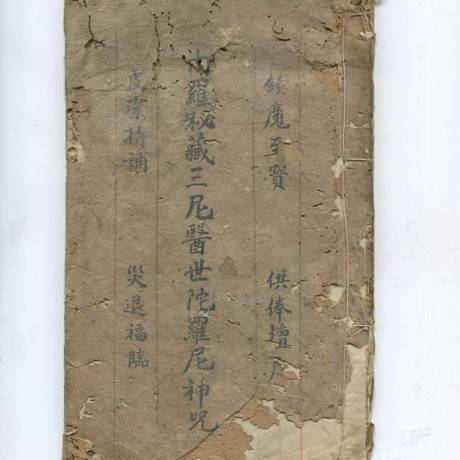 鎮魔至寶 供俸壇
羅秘藏三尼醫世陀羅尼神咒
虔潔持誦 災退福臨